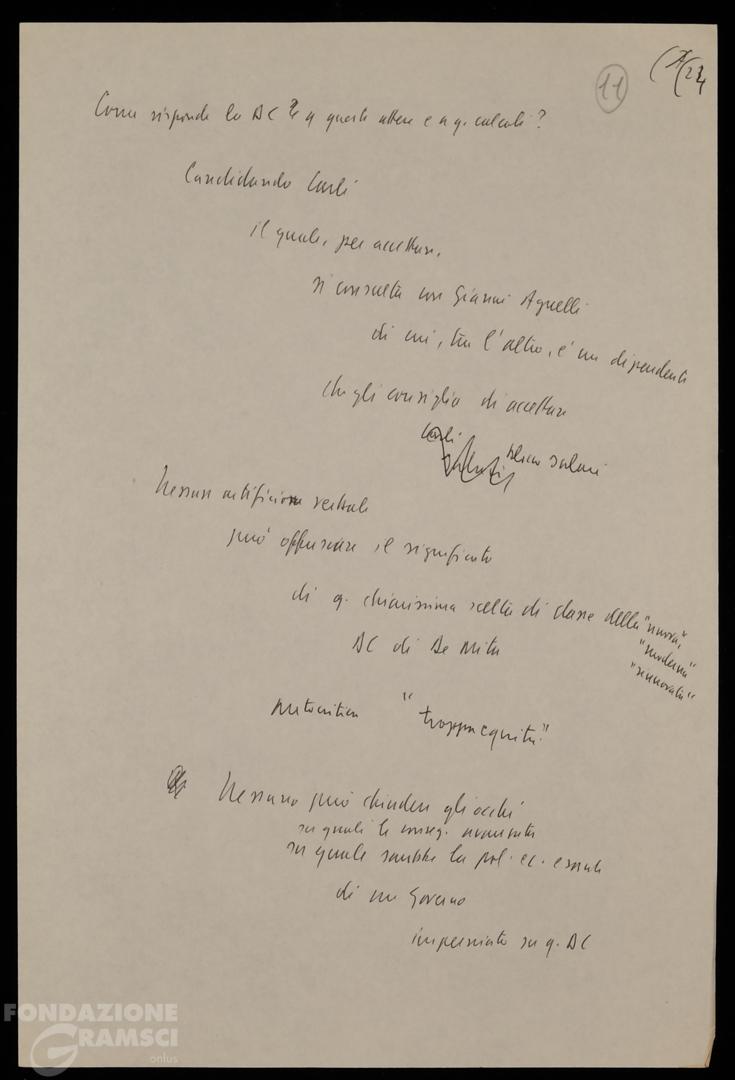 11
Come risponde la DC a queste attese e a q. calcoli?
Candidando Carli
il quale, per accettare,
si consulta con Gianni Agnelli
di cui, tra l'altro, è un dipendente
che gli consiglia di accettare
Carli
Nessun artificio verbale
può offuscare il significato
di q. chiarissima scelta di classe della "nuova",
"moderna"
"rinnovata"
DC di De Mita
Autocritica "troppa equità"
Nessuno può chiudere gli occhi
su quali le conseg.
su quale sarebbe la pol. ec. e sociale
di un Governo
imperniato su q. DC
FONDAZIONE
GRAMSCI
onlus